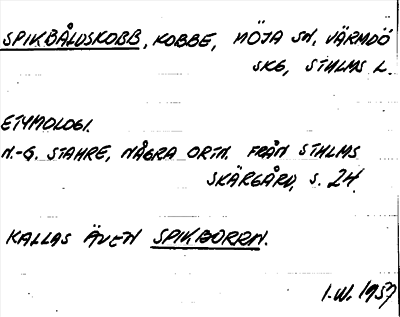 SPIKBÅLDSKOBB, KOBBE, MÖJA SN, VÄRMDÖ
SKG, STHLMS L.
ETYMOLOGI.
N.-G. STAHRE, NÅGRA ORTN. FRÅN STHLMS
SKÄRGÅRD, S. 24.
KALLAS ÄVEN SPIKBORRN.
I.W. 1957